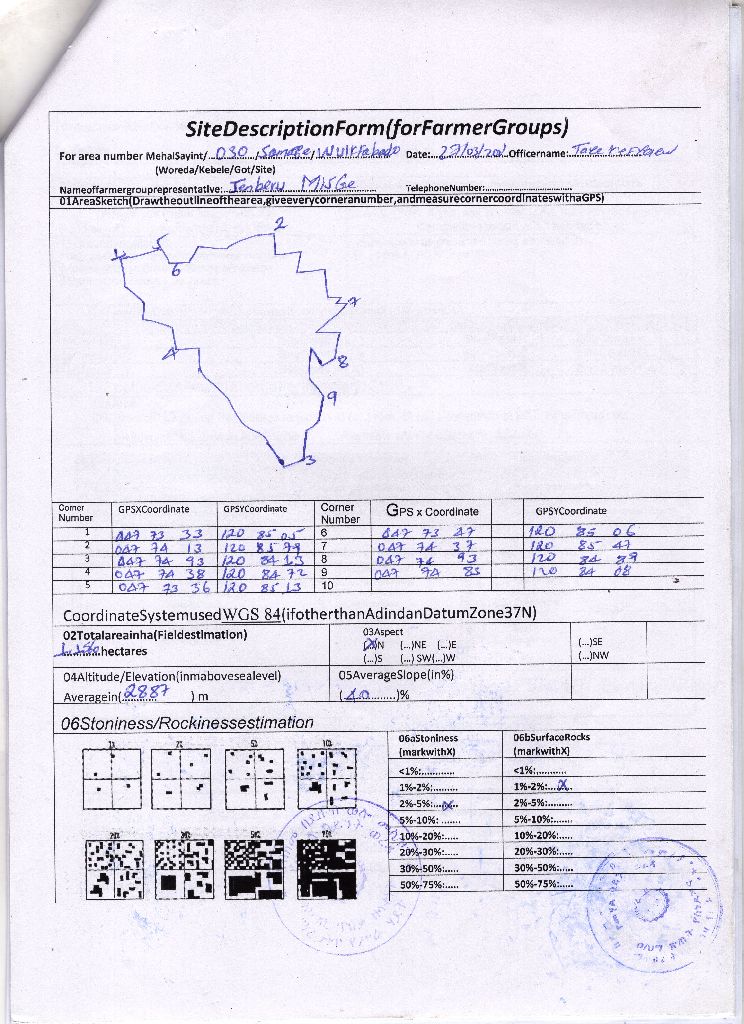 SiteDescriptionForm(forFarmerGroups)
For area number MehalSayint/...030./Samage/.......... Date:..27/03/.....Officername:..Take
(Woreda/Kebele/Got/Site)
Nameoffarmergrouprepresentative:..Jenberu.................. TelephoneNumber:..............................
01AreaSketch(Drawtheoutlineofthearea,giveeverycorneranumber,andmeasurecornercoordinateswithaGPS)
1 5 6 2
7
4 8
9
3
Corner Number GPSXCoordinate GPSYCoordinate Corner Number GPS x Coordinate GPSYCoordinate
1 047 73 33 120 85 05 6 047 73 47 120 85 06
2 047 74 13 120 85 79 7 047 74 37 120 85 47
3 047 74 93 120 84 13 8 047 74 93 120 84
4 047 74 38 120 84 72 9 047 74 83 120 84 08
5 047 73 36 120 85 13 10
CoordinateSystemusedWGS 84(ifotherthanAdindanDatumZone37N)
02Totalareainha(Fieldestimation)
1.156hectares
03Aspect
(X)N (...)NE (...)E (...)SE
(...)S (...) SW(...)W (...)NW
04Altitude/Elevation(inmabovesealevel)
Averagein(.2887 ) m
05AverageSlope(in%)
(.40........)%
06Stoniness/Rockinessestimation
1% 2% 5% 10%
20% 30% 50% 70%
06aStoniness
(markwithX)
<1%:............
1%-2%:..........
2%-5%:...X..
5%-10%: .......
10%-20%:.....
20%-30%:.....
30%-50%:.....
50%-75%:.....
06bSurfaceRocks
(markwithX)
<1%:...........
1%-2%:....X..
2%-5%:.....
5%-10%:....
10%-20%:....
20%-30%:.....
30%-50%:.....
50%-75%:.....